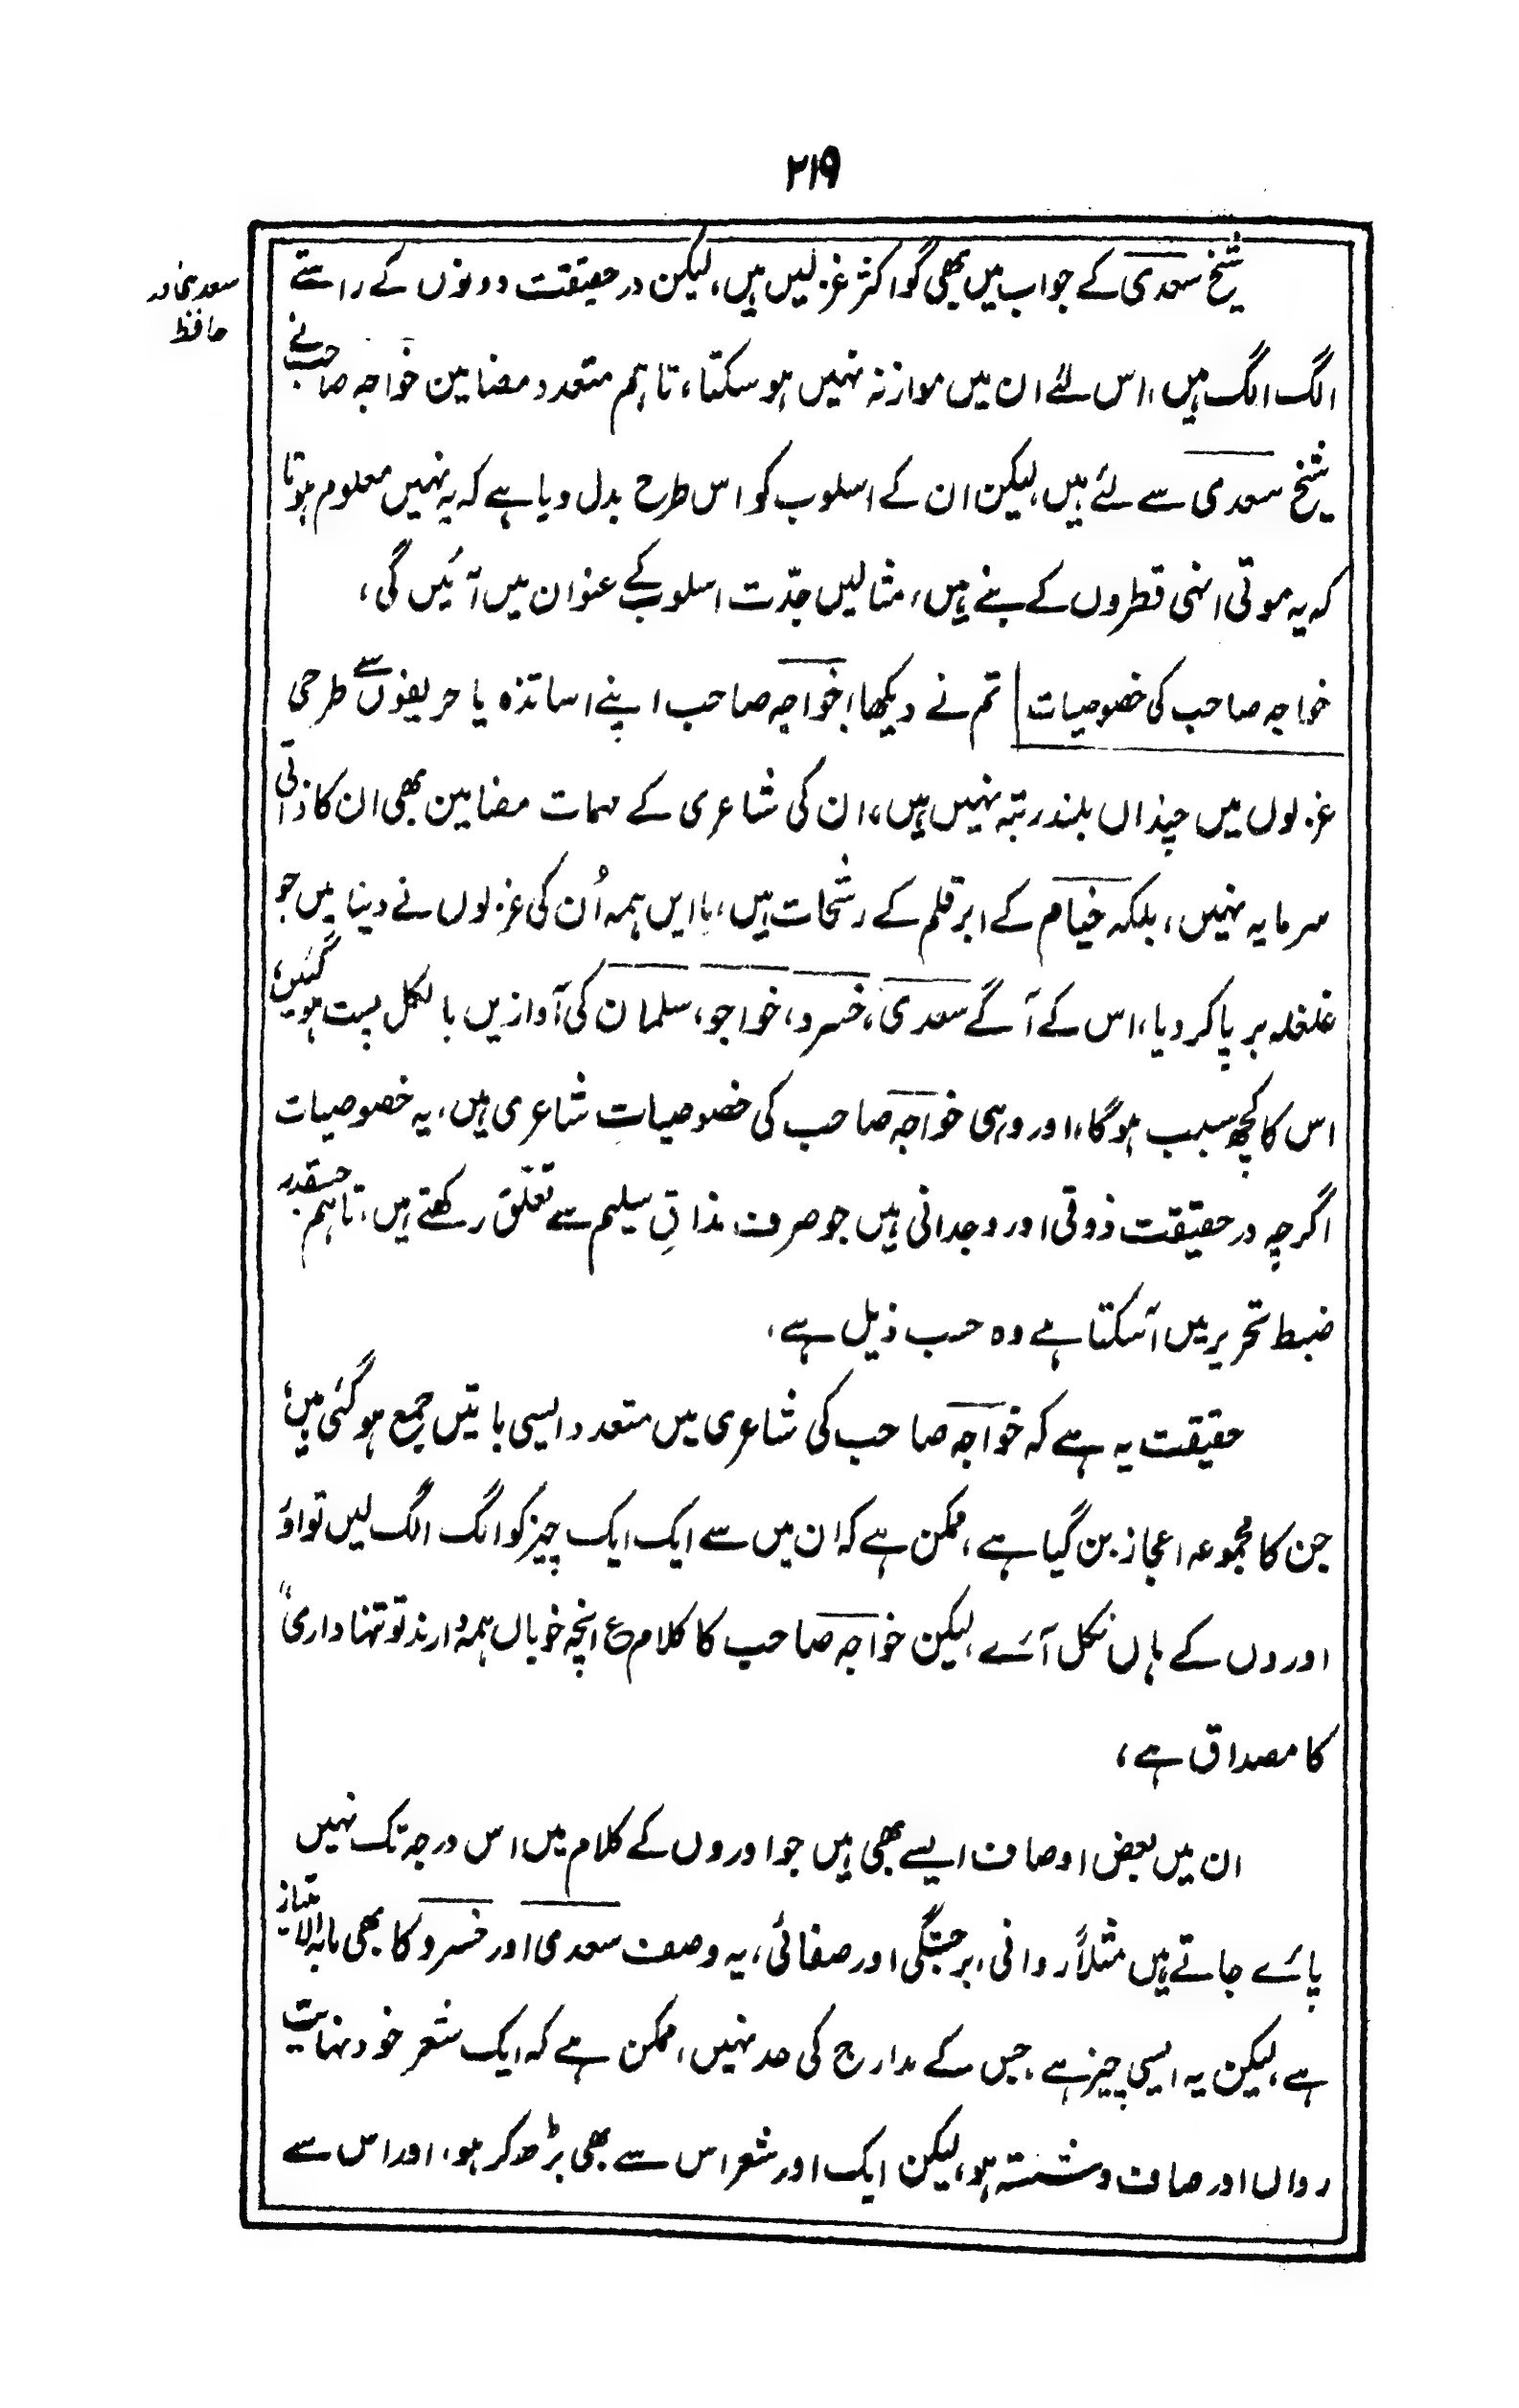 ۲۱۹
شیخ سعدی کے جواب میں بھی گو اکثر غزلیں ہیں، لیکن درحقیقت دونوں کے راستے
سعدی اور
حافظ
الگ الگ ہیں، اس لئے ان میں موازنہ نہیں ہو سکتا، تاہم متعدد مضامین خواجہ صاحب نے
شیخ سعدی سے لئے ہیں، لیکن ان کے اسلوب کو اس طرح بدل دیا ہے کہ یہ نہیں معلوم ہوتا
کہ یہ موتی انہی قطروں کے بنے ہیں، مثالیں جدّت اسلوب کے عنوان میں آئیں گی،
خواجہ صاحب کی خصوصیات | تم نے دیکھا! خواجہ صاحب اپنے اساتذہ یا حریفوں سے طرحی
غزلوں میں چنداں بلند رتبہ نہیں ہیں، ان کی شاعری کے مہمات مضامین بھی ان کا ذاتی
سرمایہ نہیں، بلکہ خیام کے ابر قلم کے رشحات ہیں، باایں ہمہ اُن کی غزلوں نے دنیا میں جو
غلغلہ برپا کر دیا، اس کے آگے سعدی، خسرو، خواجو، سلمان کی آوازیں بالکل پست ہو گئیں،
اس کا کچھ سبب ہوگا، اور وہی خواجہ صاحب کی خصوصیات شاعری ہیں، یہ خصوصیات
اگرچہ درحقیقت ذوقی اور وجدانی ہیں جو صرف مذاقِ سلیم سے تعلّق رکھتے ہیں، تاہم جسقدر
ضبط تحریر میں آسکتا ہے وہ حسب ذیل ہے،
حقیقت یہ ہے کہ خواجہ صاحب کی شاعری میں متعدد ایسی باتیں جمع ہو گئی ہیں،
جن کا مجموعہ اعجاز بن گیا ہے، ممکن ہے کہ ان میں سے ایک ایک چیز کو الگ الگ لیں تو اوَ
اوروں کے ہاں نکل آئے، لیکن خواجہ صاحب کا کلام ع انچہ خوباں ہمہ دارند تو تنہا داری"
کا مصداق ہے،
ان میں بعض اوصاف ایسے بھی ہیں جو اوروں کے کلام میں اس درجہ تک نہیں
پائے جاتے ہیں مثلاً روانی، برجستگی اور صفائی، یہ وصف سعدی اور خسرو کا بھی مابہ الامتیاز
ہے، لیکن یہ ایسی چیز ہے، جس کے مدارج کی حد نہیں، ممکن ہے کہ ایک شعر خود نہایت
رواں اور صاف و شستہ ہو، لیکن ایک اور شعر اس سے بھی بڑھ کر ہو، اور اس سے